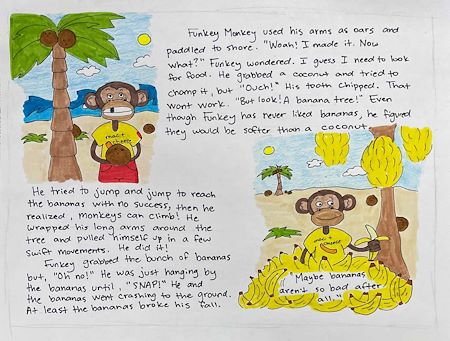 Funkey Monkey used his arms as oars and
paddled to shore. "Woah! I made it. Now
what?" Funkey wondered. I guess I need to look
for food. He grabbed a coconut and tried to
chomp it, but "Ouch!" His tooth chipped. That
wont work. "But look! A banana tree!" Even
though Funkey has never liked bananas, he figured
they would be softer than a coconut.
He tried to jump and jump to reach
the bananas with no success, then he
realized, monkeys can climb! He
wrapped his long arms around the
tree and pulled himself up in a few
swift movements. He did it!
Funkey grabbed the bunch of bananas
but, "Oh no!" He was just hanging by
the bananas until, "SNAP!" He and
the bananas went crashing to the ground.
At least the bananas broke his fall.
"Maybe bananas
aren't so bad after
all."